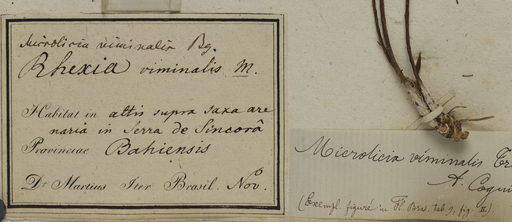 Microlicia viminalis Bg.
Rhexia viminalis M.
Habitat in altis supra saxa are
naria in Serra de Sincorá
Provinciae Bahiensis
Dr Martius Iter Brasil. Novb
Microlicia viminalis Tr
A. Cogni
(Exempl. figuré in Fl. Bras. tab. 9, fig. II).